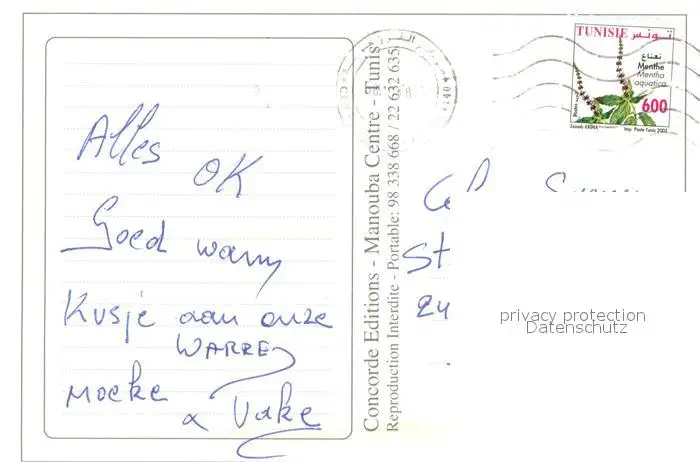 Alles
OK
Goed warm
Kusje aan onze
WARRE
Moeke
& Vake
Concorde Editions - Manouba Centre - Tunis
Reproduction Interdite - Portable: 98 338 668 / 22 632 635
TUNISIE تونس
نعناع
Menthe
Mentha
aquatica
600
Zeineb KRIMA Imp. Poste Tunis 2005
St
privacy protection
Datenschutz